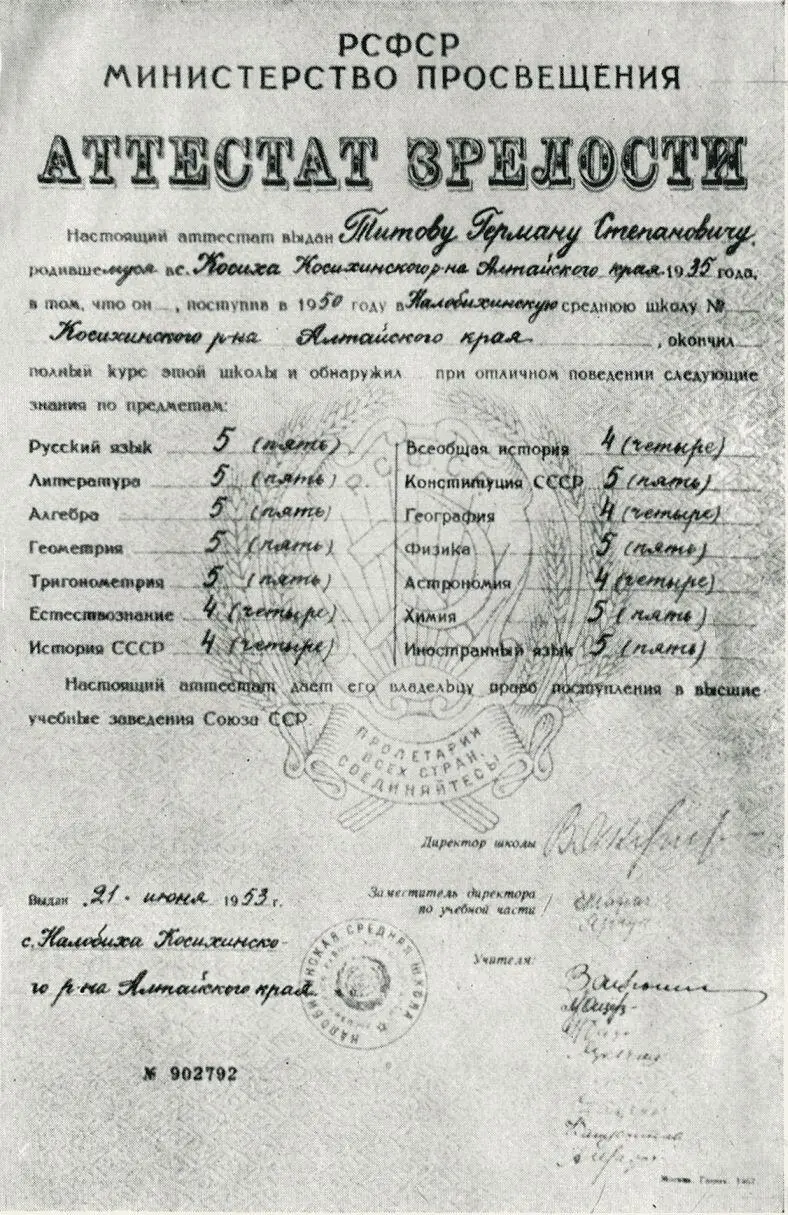 РСФСР
МИНИСТЕРСТВО ПРОСВЕЩЕНИЯ
АТТЕСТАТ ЗРЕЛОСТИ
Настоящий аттестат выдан Титову Герману Степановичу,
родившемуся в с. Косиха Косихинского р-на Алтайского края 1935 года,
в том, что он , поступив в 1950 году в Налобихинскую среднюю школу №
Косихинского р-на Алтайского края , окончил
полный курс этой школы и обнаружил при отличном поведении следующие
знания по предметам:
Русский язык 5 (пять) Всеобщая история 4 (четыре)
Литература 5 (пять) Конституция СССР 5 (пять)
Алгебра 5 (пять) География 4 (четыре)
Геометрия 5 (пять) Физика 5 (пять)
Тригонометрия 5 (пять) Астрономия 4 (четыре)
Естествознание 4 (четыре) Химия 5 (пять)
История СССР 4 (четыре) Иностранный язык 5 (пять)
Настоящий аттестат дает его владельцу право поступления в высшие
учебные заведения Союза ССР.
РСФСР
ПРОЛЕТАРИИ
ВСЕХ СТРАН,
СОЕДИНЯЙТЕСЬ!
Директор школы
Выдан „21" июня 1953 г.
Заместитель директора
по учебной части
с. Налобиха Косихинско-
го р-на Алтайского края
НАЛОБИХИНСКАЯ СРЕДНЯЯ ШКОЛА
Учителя:
№ 902792
Москва. Гознак.